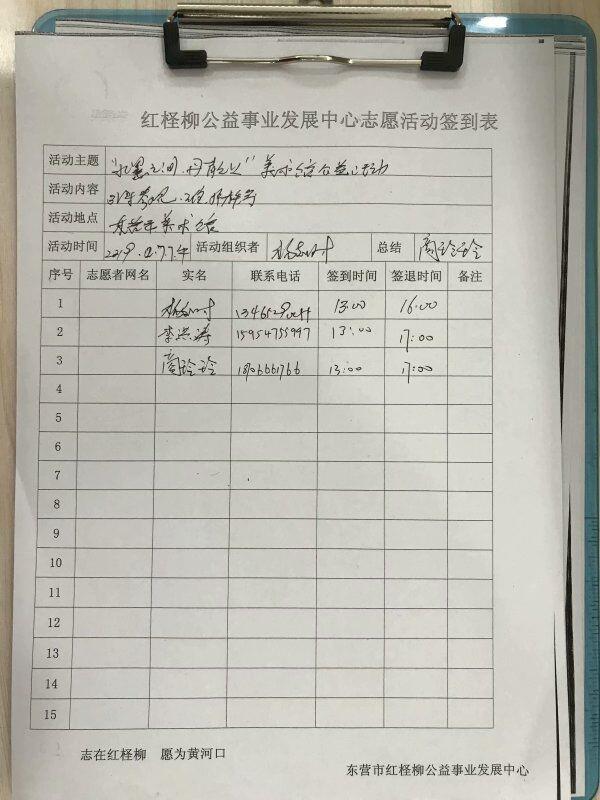 红柽柳公益事业发展中心志愿活动签到表
活动主题 美术馆公益活动
活动内容
活动地点 东营市美术馆
活动时间 活动组织者 总结 商玲玲
序号 志愿者网名 实名 联系电话 签到时间 签退时间 备注
1 13:00 16:00
2 李洪涛 15954755997 13:00 17:00
3 商玲玲 13:00 17:00
4
5
6
7
8
9
10
11
12
13
14
15
志在红柽柳 愿为黄河口
东营市红柽柳公益事业发展中心